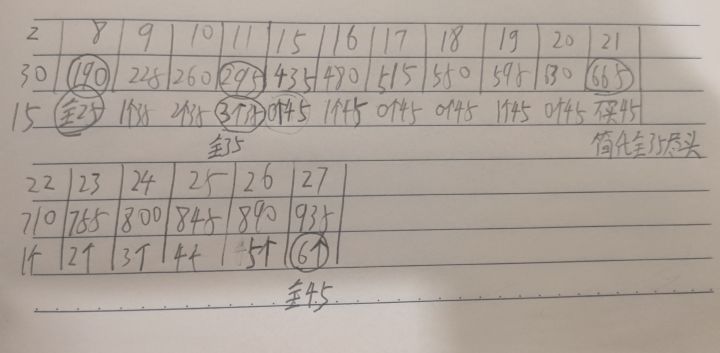 2 8 9 10 11 15 16 17 18 19 20 21
30 190 225 260 295 435 480 515 550 595 630 665
15 全25 1个35 2个35 3个35 0个45 1个45 0个45 0个45 1个45 0个45 不买45
全35 简化全35尽头
22 23 24 25 26 27
710 755 800 845 890 935
1个 2个 3个 4个 5个 6个
全45